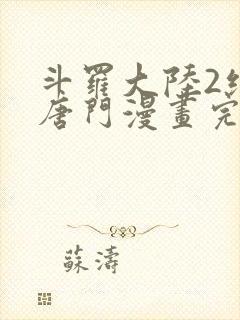 斗羅大陸2
唐門漫畫完
蘇濤